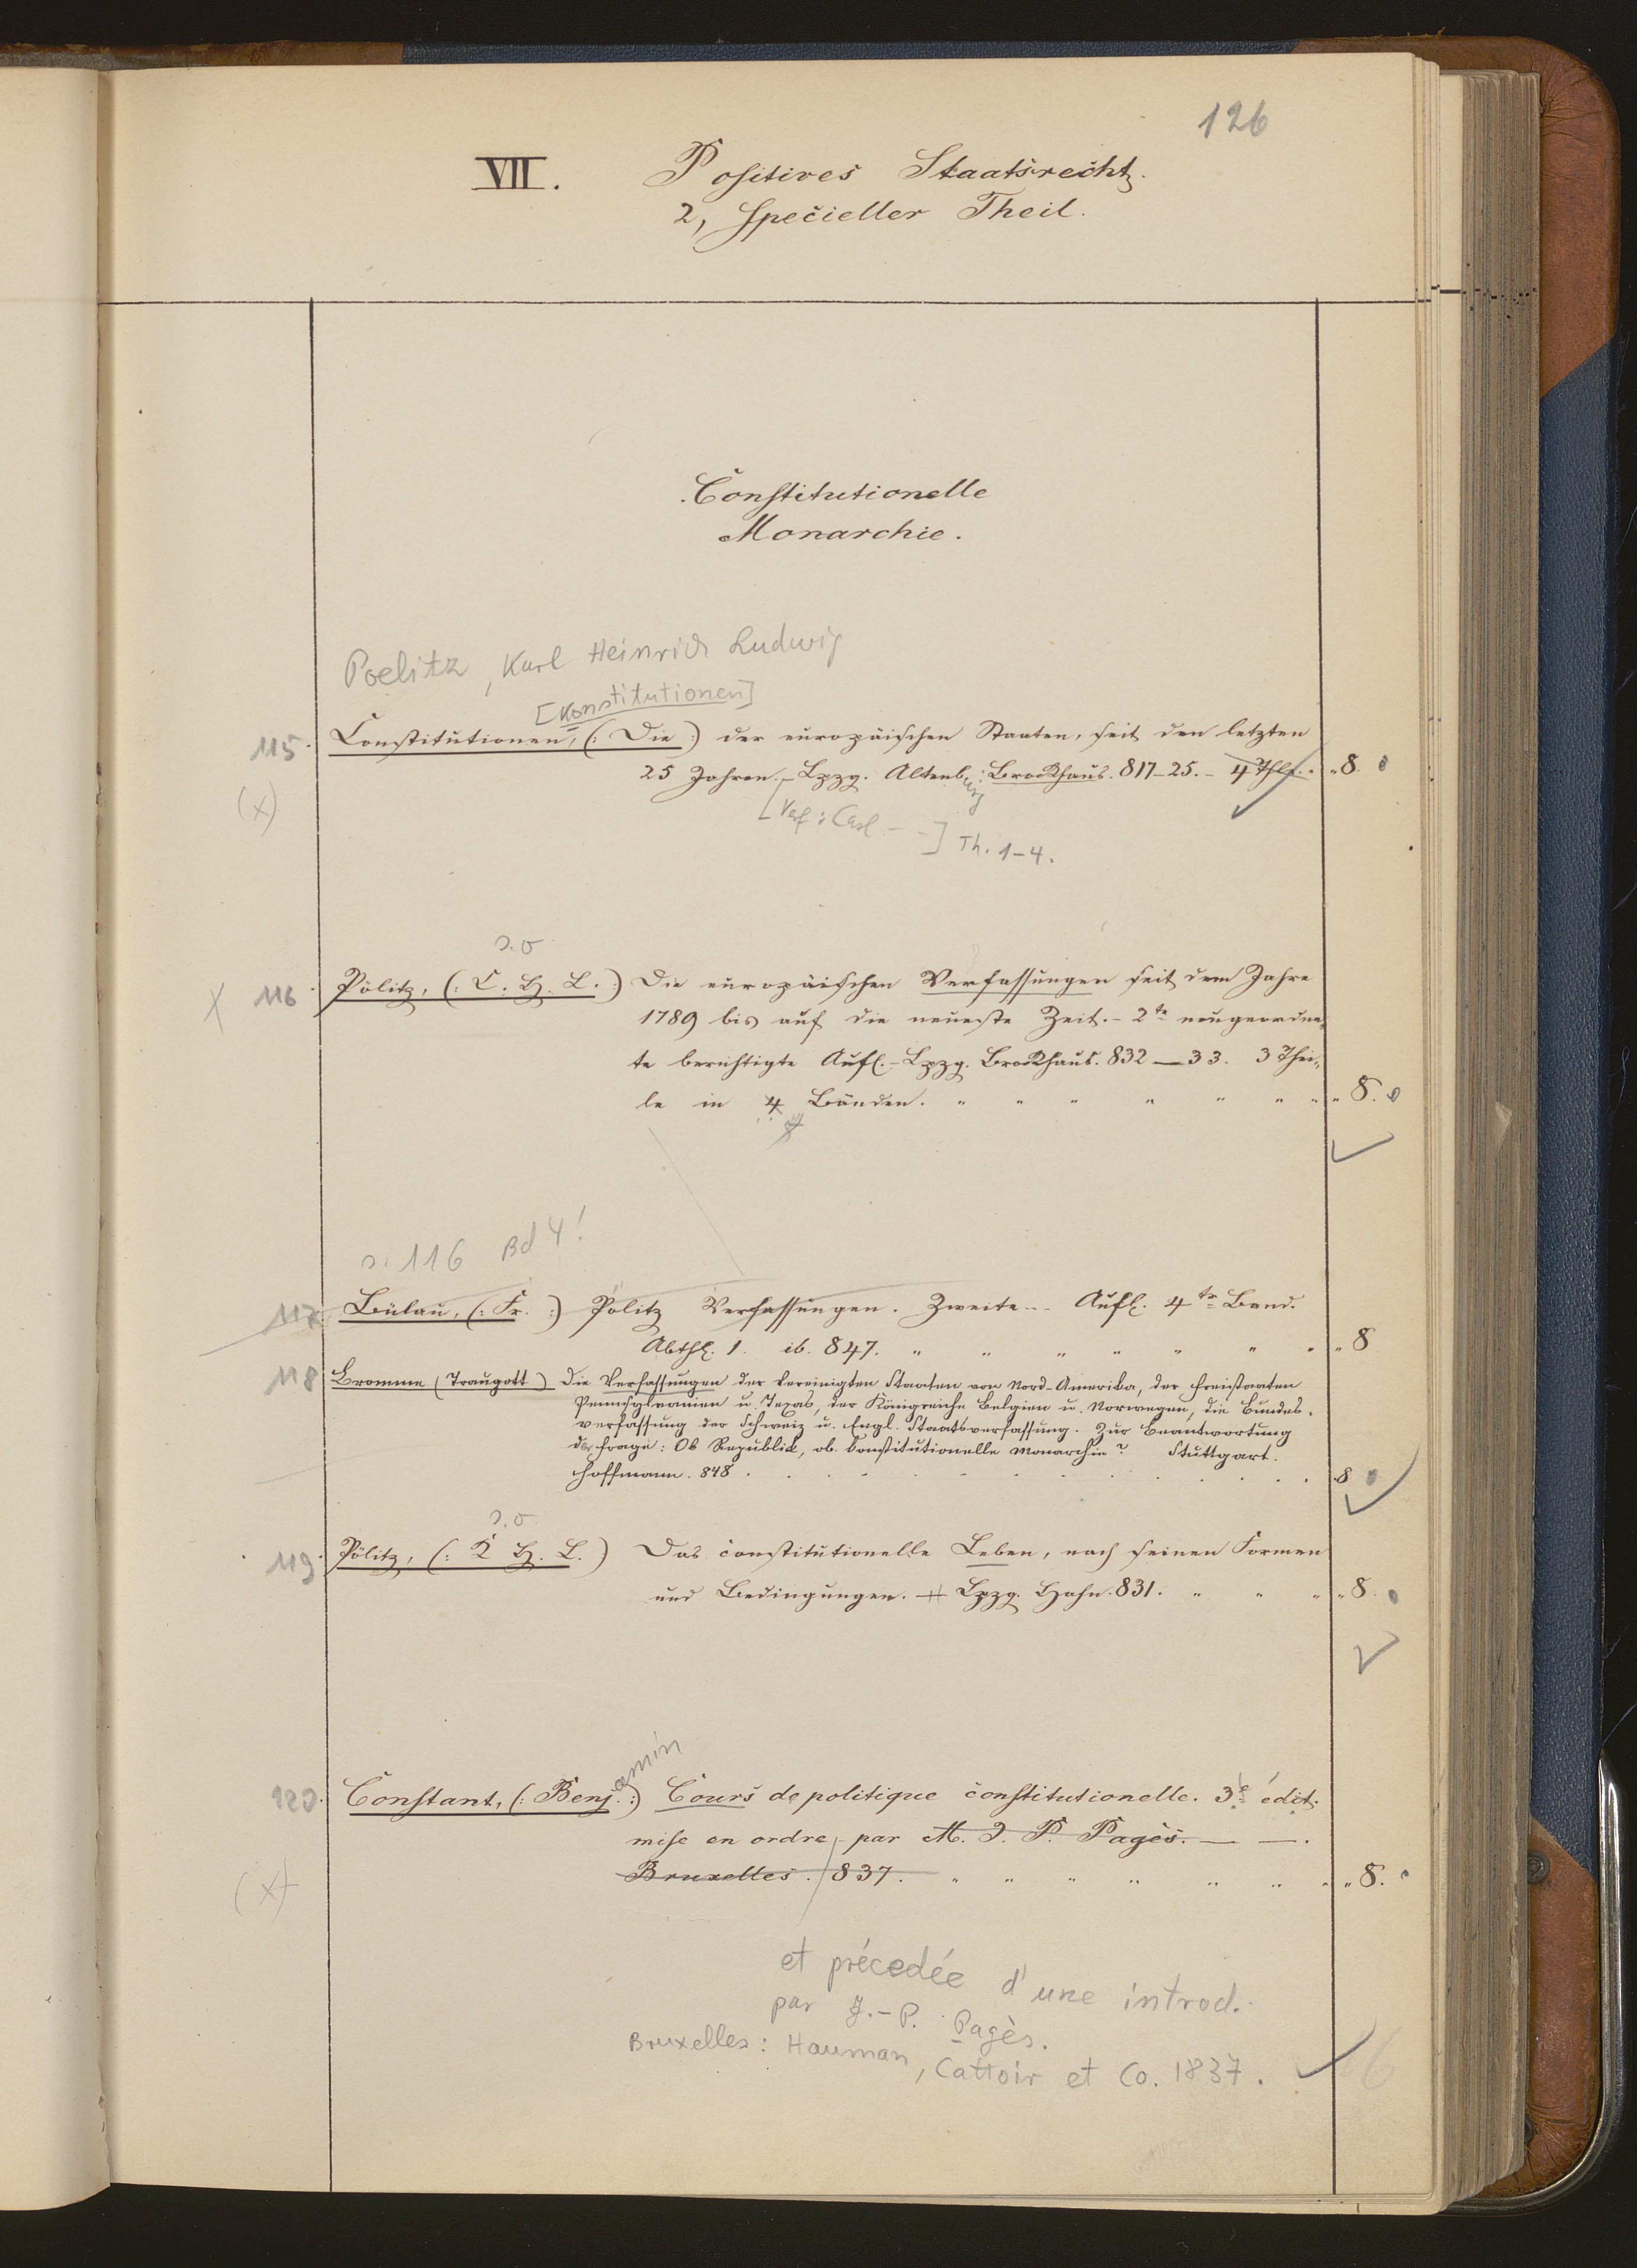 126
VII. Positives Staatsrecht.
2, Specieller Theil.
Constitutionelle
Monarchie.
Poelitz, Karl Heinrich Ludwig
[Konstitutionen]
115. Constitutionen, (: Die :) der europäischen Staaten, seit den letzten
25 Jahren. – Lpzg. Altenburg: Brockhaus. 817–25. – 4 Thle. " 8.
(x) [Verf: Carl – –] Th. 1–4.
s. o
X 116. Pölitz, (: C. H. L. :) Die europäischen Verfassungen seit dem Jahre
1789 bis auf die neueste Zeit. – 2te neugeordne-
te berichtigte Aufl. – Lpzg. Brockhaus. 832–33. 3 Thei-
le in 4 Bänden. " " " " " " " " 8.
s. 116 Bd 4!
117. Bülau, (: Fr. :) Pölitz Verfassungen. Zweite - - Aufl. 4ter Band.
Abthl. 1. ib. 847. " " " " " " " " 8
118 Bromme (Traugott) Die Verfassungen der Vereinigten Staaten von Nord-Amerika, der Freistaaten
Pennsylvanien u. Texas, der Königreiche Belgien u. Norwegen, die Bundes-
verfassung der Schweiz u. Engl. Staatsverfassung. Zur Beantwortung
der Frage: Ob Republik, ob konstitutionelle Monarchie? Stuttgart.
Hoffmann. 848 . . . . . . . . . . . 8
s. o
119. Pölitz, (: K H. L. ) Das constitutionelle Leben, nach seinen Formen
und Bedingungen. – Lpzg. Hahn. 831. " " " " 8.
120. Constant, (: Benjamin :) Cours de politique constitutionelle. 3e édit.
mise en ordre par M. J. P. Pagès. — —.
Bruxelles. 837. " " " " " " " " 8.
(x)
et précedée d'une introd.
par J.-P. Pagès.
Bruxelles: Hauman, Cattoir et Co. 1837.